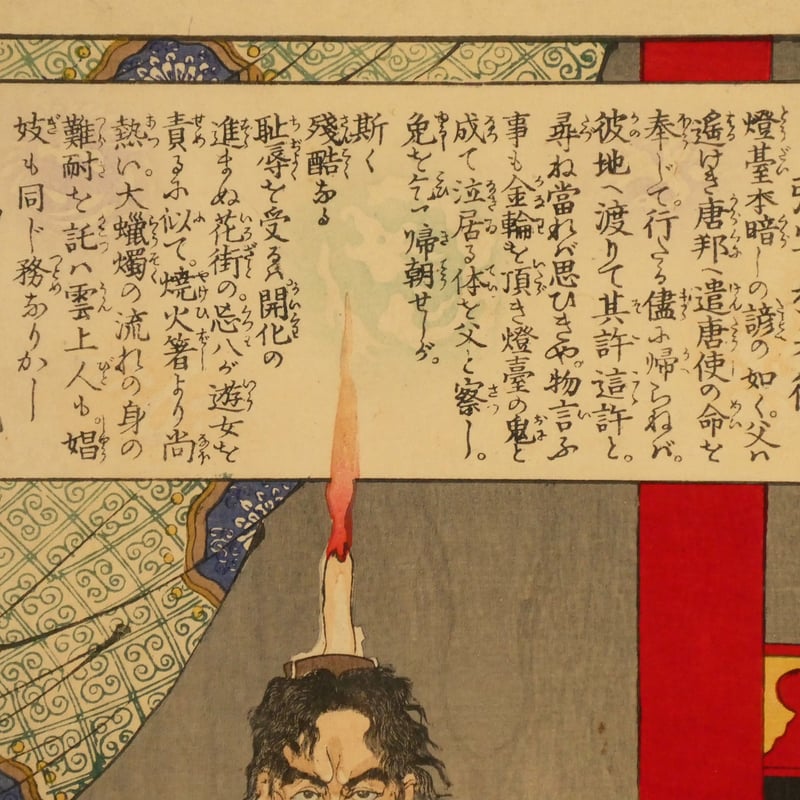 燈臺本暗しの諺の如く。父ハ
遥けき唐邦へ遣唐使の命を
奉じて。行たる儘に帰らねバ。
彼地へ渡りて其許這許と。
尋ね當れバ思ひきや。物言ふ
事も金輪を頂き燈臺の鬼と
成て泣居る体を父と察し。
免を乞て帰朝せしが。
斯く
殘酷なる
耻辱を受るハ開化の
進まぬ花街の。忘八が遊女を
責るに似て。焼火箸より尚
熱い。大蠟燭の流れの身の
難耐を託ハ雲上人も。娼
妓も同じ務なりかし